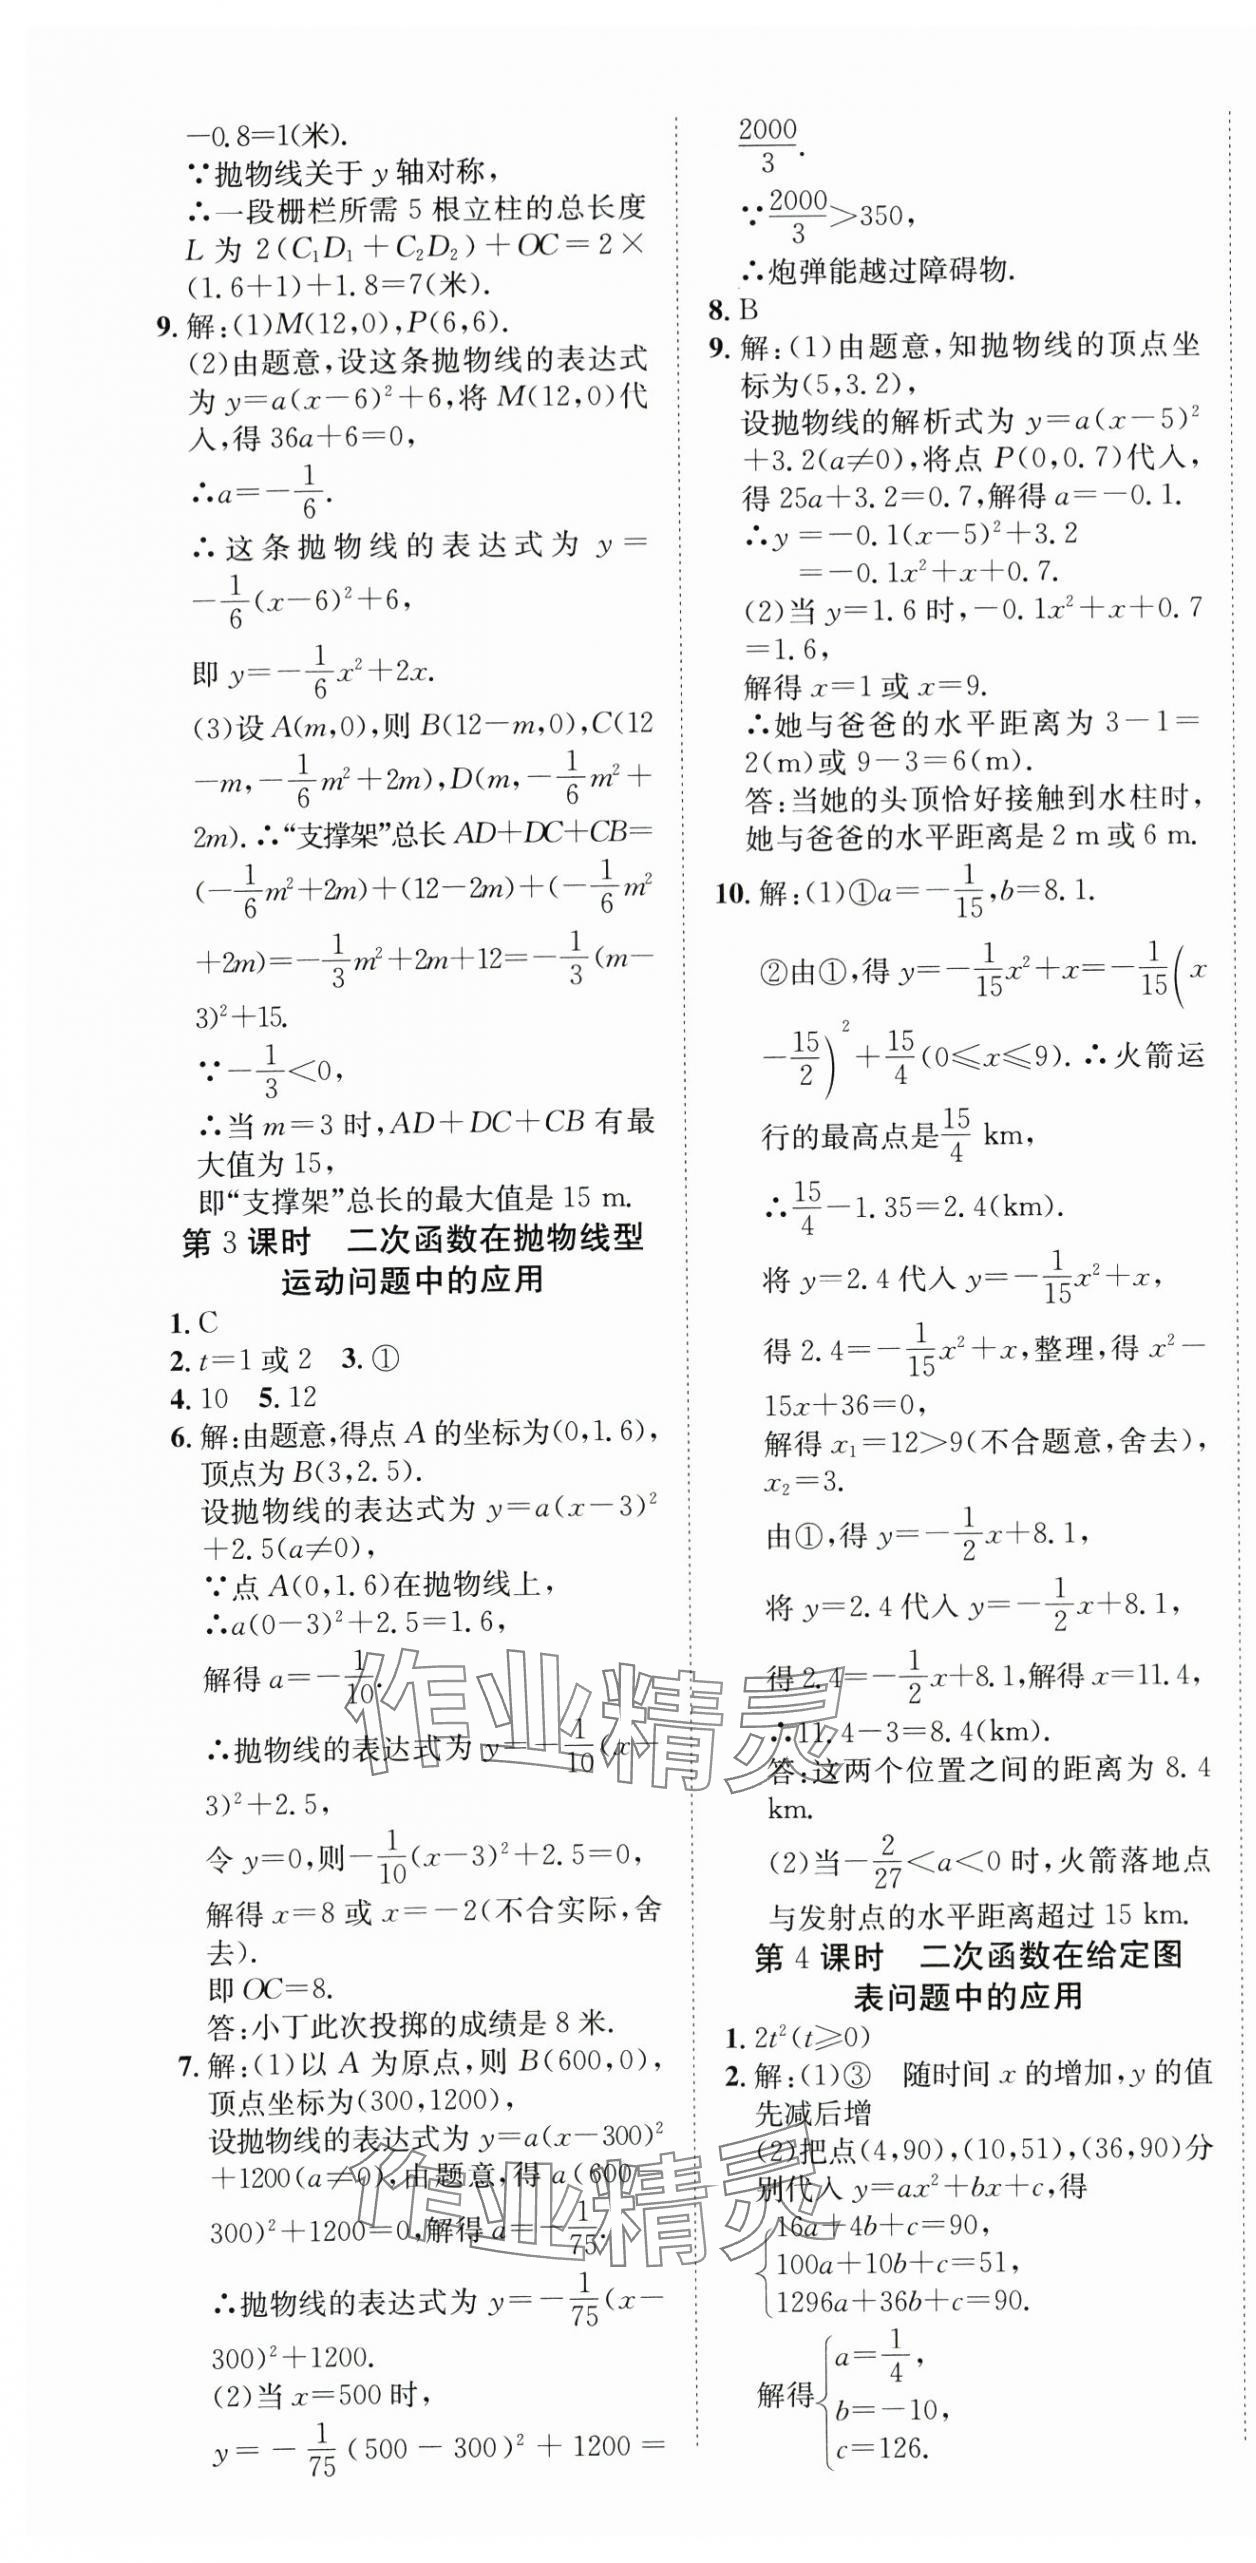 －0.8＝1(米).
∵抛物线关于 y 轴对称，
∴一段栅栏所需 5 根立柱的总长度
L 为 2(C₁D₁＋C₂D₂)＋OC＝2×
(1.6＋1)＋1.8＝7(米).
9. 解：(1)M(12,0),P(6,6).
(2)由题意，设这条抛物线的表达式
为 y＝a(x－6)²＋6，将 M(12,0)代
入，得 36a＋6＝0，
∴a＝－1/6.
∴这条抛物线的表达式为 y＝
－1/6(x－6)²＋6，
即 y＝－1/6x²＋2x.
(3)设 A(m,0)，则 B(12－m,0),C(12
－m,－1/6m²＋2m),D(m,－1/6m²＋
2m).∴“支撑架”总长 AD＋DC＋CB＝
(－1/6m²＋2m)＋(12－2m)＋(－1/6m²
＋2m)＝－1/3m²＋2m＋12＝－1/3(m－
3)²＋15.
∵－1/3＜0，
∴当 m＝3 时，AD＋DC＋CB 有最
大值为 15，
即“支撑架”总长的最大值是 15 m.
第 3 课时　二次函数在抛物线型
运动问题中的应用
1. C
2. t＝1 或 2　3. ①
4. 10　5. 12
6. 解：由题意，得点 A 的坐标为(0,1.6)，
顶点为 B(3,2.5).
设抛物线的表达式为 y＝a(x－3)²
＋2.5(a≠0)，
∵点 A(0,1.6)在抛物线上，
∴a(0－3)²＋2.5＝1.6，
解得 a＝－1/10.
∴抛物线的表达式为 y＝－1/10(x－
3)²＋2.5，
令 y＝0，则－1/10(x－3)²＋2.5＝0，
解得 x＝8 或 x＝－2(不合实际，舍
去).
即 OC＝8.
答：小丁此次投掷的成绩是 8 米.
7. 解：(1)以 A 为原点，则 B(600,0)，
顶点坐标为(300,1200)，
设抛物线的表达式为 y＝a(x－300)²
＋1200(a≠0)，由题意，得 a(600－
300)²＋1200＝0，解得 a＝－1/75，
∴抛物线的表达式为 y＝－1/75(x－
300)²＋1200.
(2)当 x＝500 时，
y＝－1/75(500－300)²＋1200＝
2000/3.
∵2000/3＞350，
∴炮弹能越过障碍物.
8. B
9. 解：(1)由题意，知抛物线的顶点坐
标为(5,3.2)，
设抛物线的解析式为 y＝a(x－5)²
＋3.2(a≠0)，将点 P(0,0.7)代入，
得 25a＋3.2＝0.7，解得 a＝－0.1.
∴y＝－0.1(x－5)²＋3.2
＝－0.1x²＋x＋0.7.
(2)当 y＝1.6 时，－0.1x²＋x＋0.7
＝1.6，
解得 x＝1 或 x＝9.
∴她与爸爸的水平距离为 3－1＝
2(m)或 9－3＝6(m).
答：当她的头顶恰好接触到水柱时，
她与爸爸的水平距离是 2 m 或 6 m.
10. 解：(1)①a＝－1/15，b＝8.1.
②由①，得 y＝－1/15x²＋x＝－1/15(x
－15/2)²＋15/4(0≤x≤9).∴火箭运
行的最高点是15/4 km，
∴15/4－1.35＝2.4(km).
将 y＝2.4代入 y＝－1/15x²＋x，
得 2.4＝－1/15x²＋x，整理，得 x²－
15x＋36＝0，
解得 x₁＝12＞9(不合题意，舍去)，
x₂＝3.
由①，得 y＝－1/2x＋8.1，
将 y＝2.4代入 y＝－1/2x＋8.1，
得2.4＝－1/2x＋8.1，解得 x＝11.4，
∴11.4－3＝8.4(km).
答：这两个位置之间的距离为 8.4
km.
(2)当－2/27＜a＜0 时，火箭落地点
与发射点的水平距离超过 15 km.
第 4 课时　二次函数在给定图
表问题中的应用
1. 2t²(t≥0)
2. 解：(1)③　随时间 x 的增加，y 的值
先减后增
(2)把点(4,90)，(10,51)，(36,90)分
别代入 y＝ax²＋bx＋c，得
16a＋4b＋c＝90，
100a＋10b＋c＝51，
1296a＋36b＋c＝90.
解得
a＝1/4，
b＝－10，
c＝126.
作业精灵
作业精灵